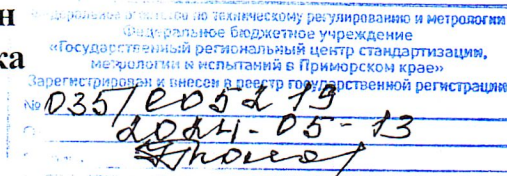 н
ка
Федеральное агентство по техническому регулированию и метрологии
Федеральное бюджетное учреждение
«Государственный региональный центр стандартизации,
метрологии и испытаний в Приморском крае»
Зарегистрирован и внесен в реестр государственной регистрации
№ 035/005219
2024-05-13